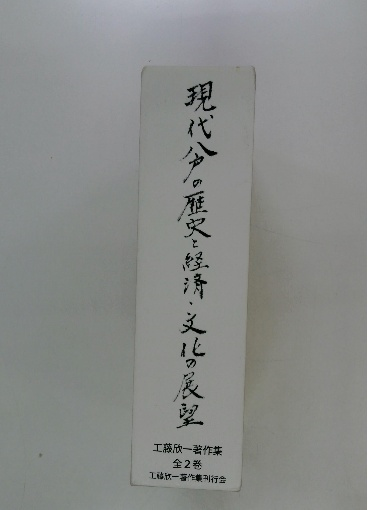 現代八戸の歴史と経済・文化の展望
工藤欣一著作集
全2巻
工藤欣一著作集刊行会